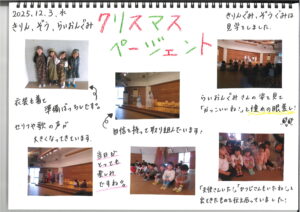 2025.12.3.水
きりん、ぞう、らいおんぐみ
クリスマス
ページェント
きりんぐみ、ぞうぐみは
見学をしました。
衣装を着て
準備ばっちりです。
セリフや歌の声が
大きくなってきています。
自信を持って取り組んでいます。
当日が
とっても
楽しみ
ですね。
らいおんぐみさんの姿を見て
「かっこいいね!」と憧れの眼差し!
「天使さんいた!」「ひつじさんもいたね!」と
見てきたものを伝え合っていました!